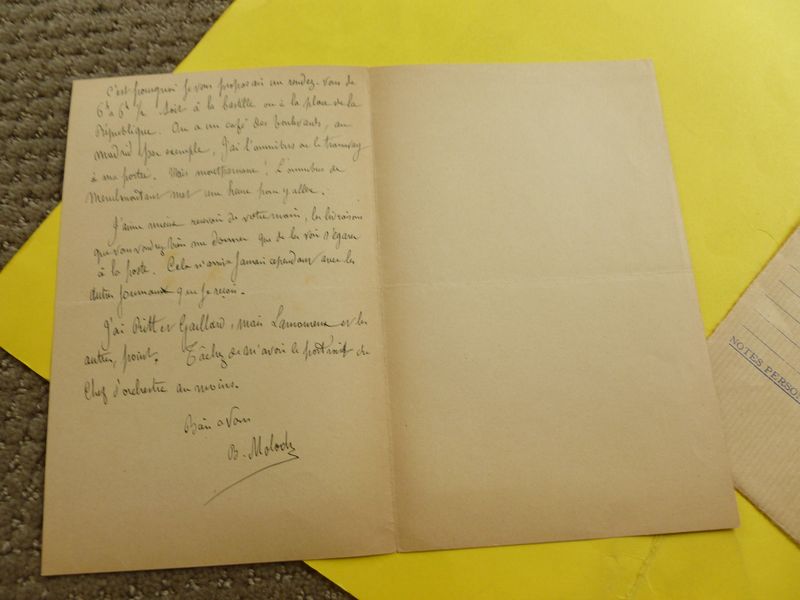 C'est pourquoi je vous proposais un rendez-vous de
6h à 6h ½ soit à la bastille ou à la place de la
République. On a un café des boulevards, au
madrid par exemple, j'ai l'omnibus ou le tramway
à ma porte. Mais montparnasse! L'omnibus de
Menilmontant met une heure pour y aller.
J'aime mieux recevoir de votre main, les livraisons
que vous voudrez bien me donner que de les voir s'égarer
à la poste. Cela n'arrive jamais cependant avec les
autres journaux que je reçois.
J'ai Ritt et Gaillard, mais Lamoureux et les
autres, point. Tâchez de m'avoir le portrait du
Chef d'orchestre au moins.
Bien à vous
B. Moloch
NOTES PERSO